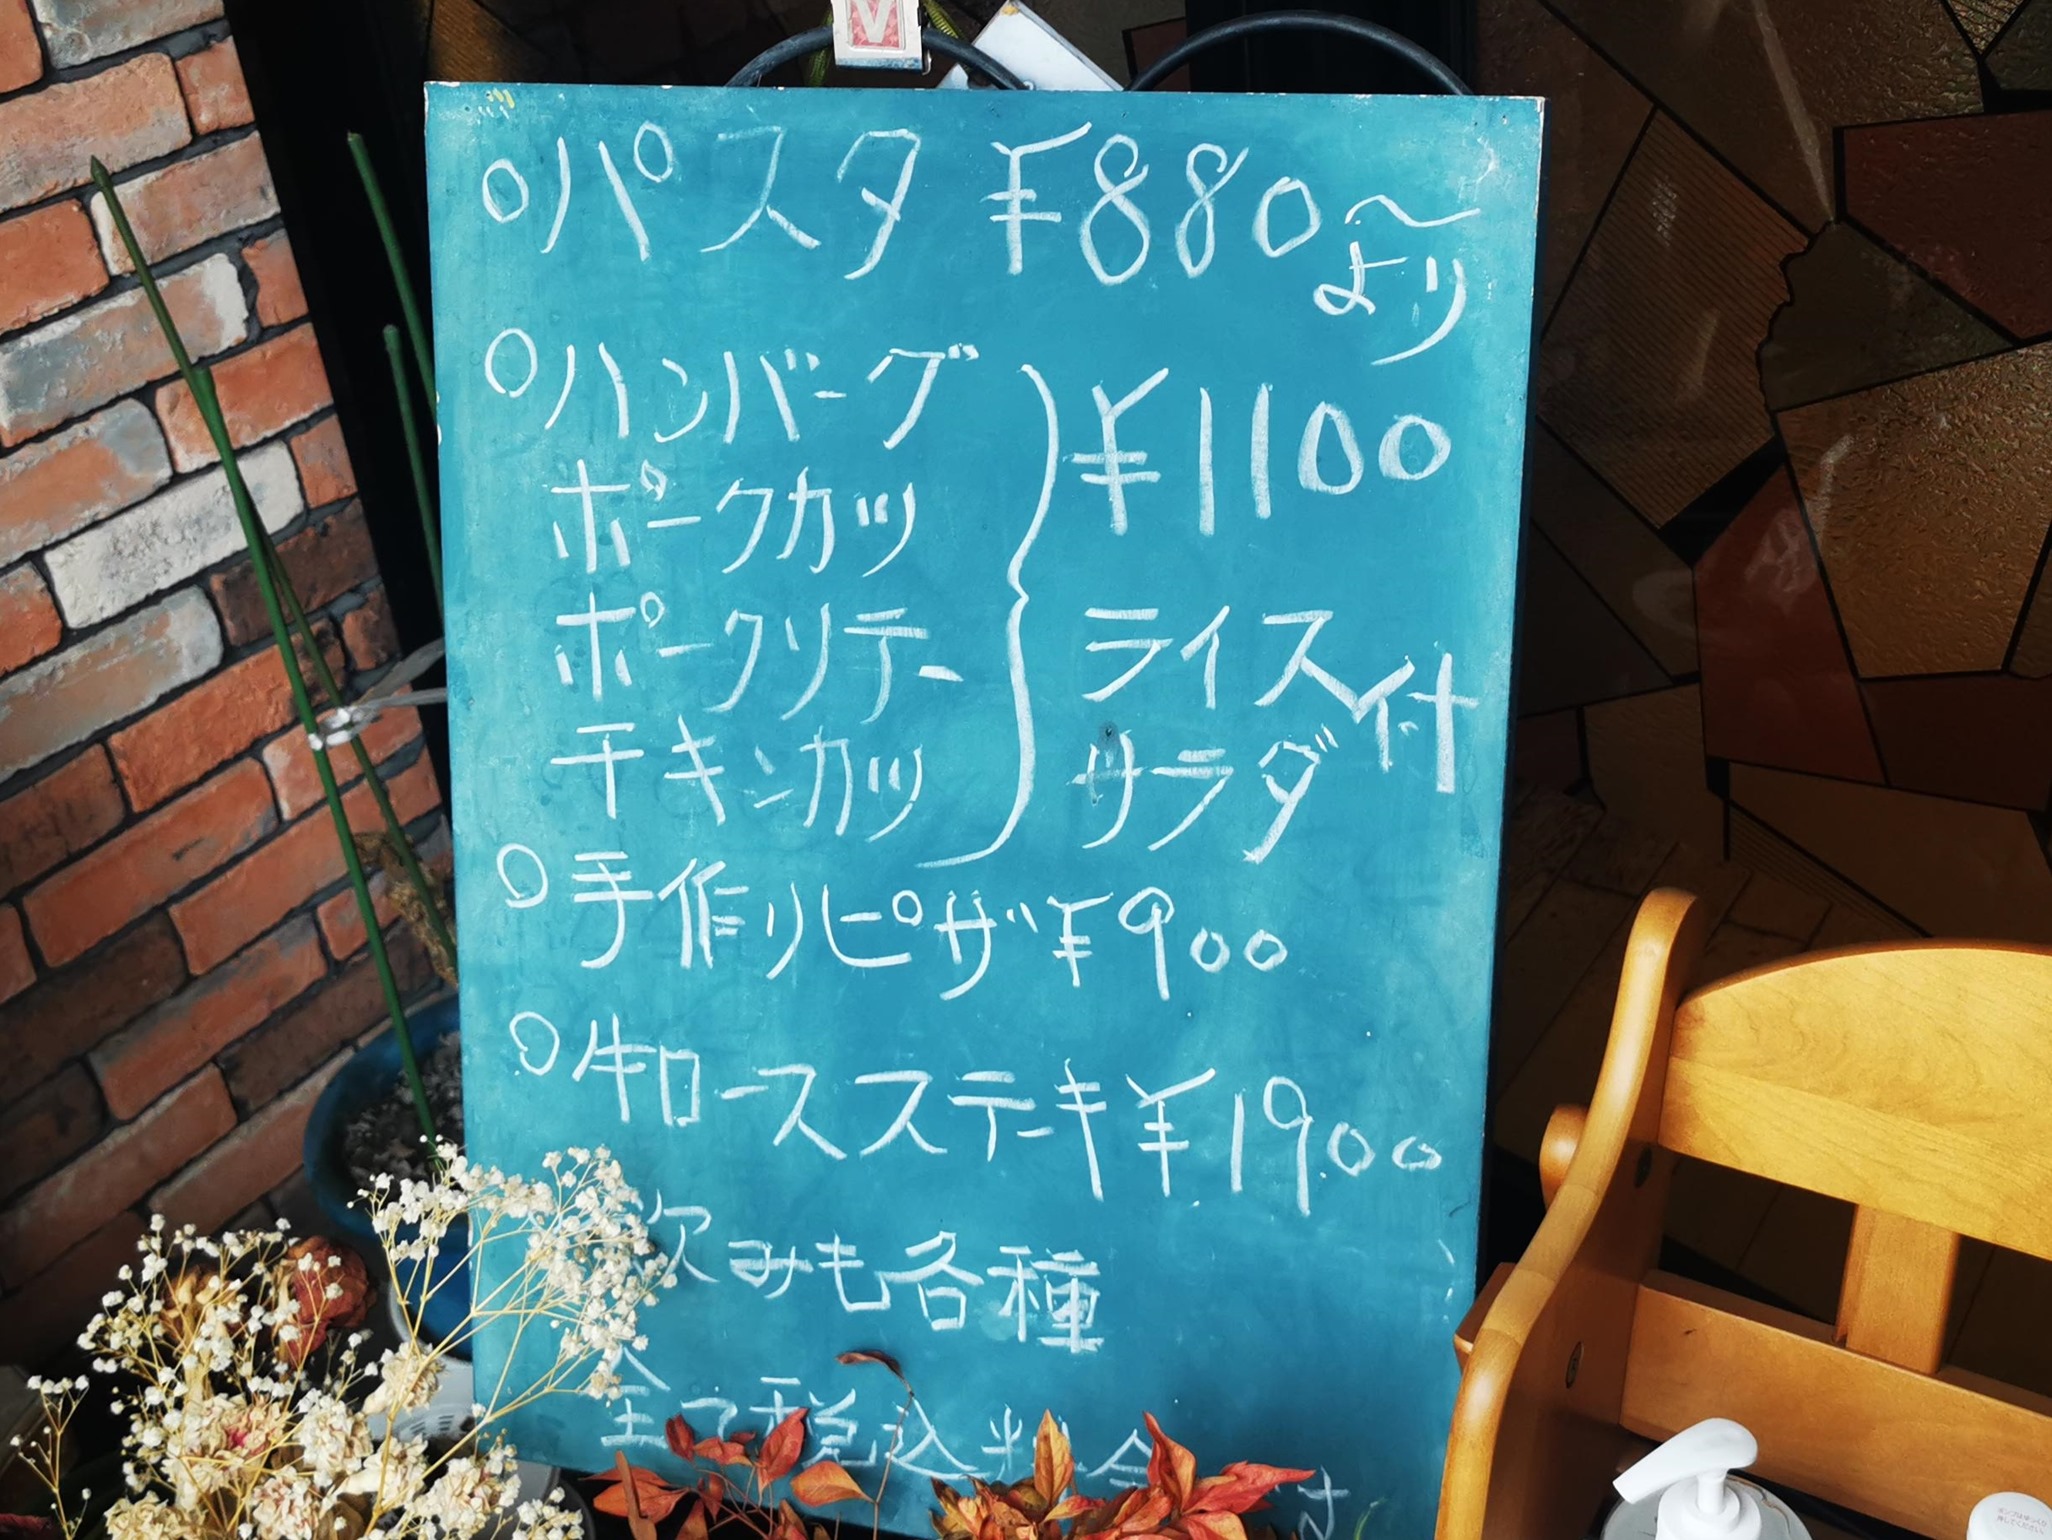 V
○パスタ ¥880〜
より
○ハンバーグ
ポークカツ
ポークソテー
チキンカツ
¥1100
ライス
サラダ
付
○手作りピザ ¥900
○牛ロースステーキ ¥1900
飲みもの各種
全て税込料金